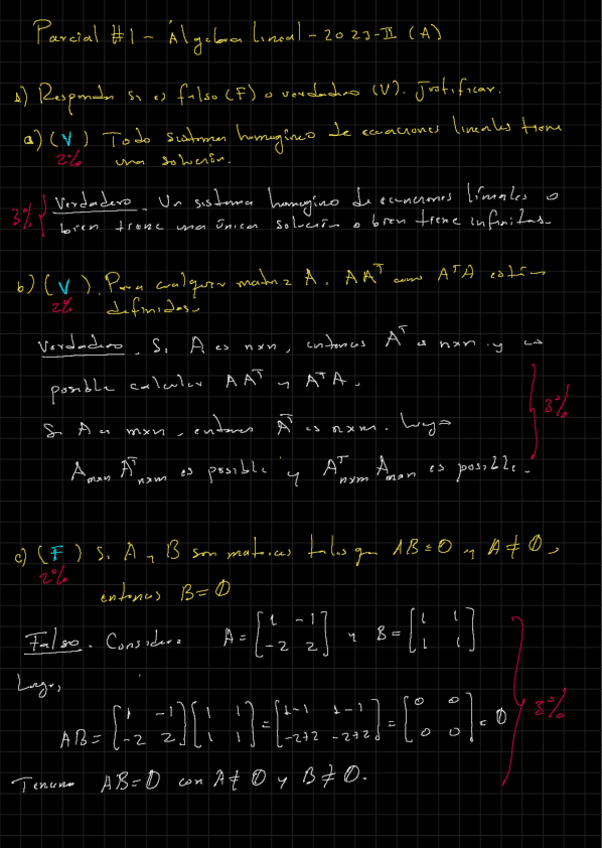 Parcial #1 - Álgebra lineal - 2023-II (A)
1) Responda si es falso (F) o verdadero (V). Justificar.
a) (V) Todo sistema homogéneo de ecuaciones lineales tiene
2% una solución.
3% Verdadero. Un sistema homogéneo de ecuaciones lineales o
bien tiene una única solución o bien tiene infinitas.
b) (V). Para cualquier matriz A. AAᵀ como AᵀA están
2% definidas.
Verdadero. Si A es nxn, entonces Aᵀ es nxn y es
posible calcular AAᵀ y AᵀA.
3%
Si A es mxn, entonces Aᵀ es nxm. Luego
Aₘₓₙ Aᵀₙₓₘ es posible y Aᵀₙₓₘ Aₘₓₙ es posible.
c) (F) Si A y B son matrices tales que AB=0 y A≠0,
2% entonces B=0
Falso. Considere A = [1 -1; -2 2] y B = [1 1; 1 1]
Luego,
AB = [1 -1; -2 2] [1 1; 1 1] = [1-1 1-1; -2+2 -2+2] = [0 0; 0 0] = 0 3%
Tenemos AB=0 con A≠0 y B≠0.